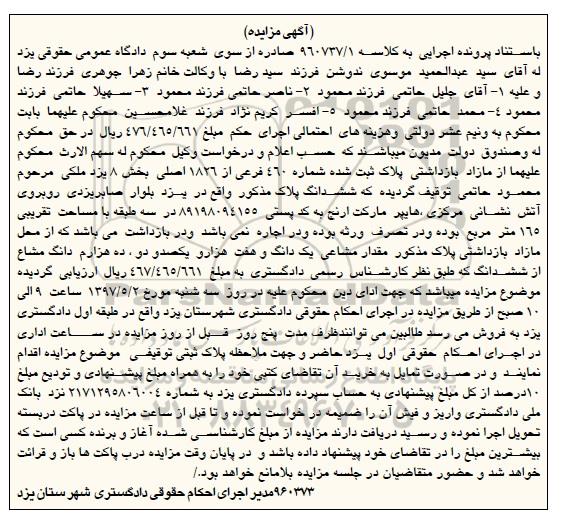 (آگهی مزایده)
باستناد پرونده اجرایی به کلاسه ۹۶۰۷۳۷/۱ صادره از سوی شعبه سوم دادگاه عمومی حقوقی یزد
له آقای سید عبدالحمید موسوی ندوشن فرزند سید رضا با وکالت خانم زهرا جوهری فرزند رضا
و علیه ۱- آقای جلیل حاتمی فرزند محمود ۲- ناصر حاتمی فرزند محمود ۳- سهیلا حاتمی فرزند
محمود ۴- محمد حاتمی فرزند محمود ۵- افسر کریم نژاد فرزند غلامحسین محکوم علیهما بابت
محکوم به ونیم عشر دولتی وهزینه های احتمالی اجرای حکم مبلغ ۴۷۶/۴۶۵/۶۶۱ ریال در حق محکوم
له وصندوق دولت مدیون میباشند که حسب اعلام و درخواست وکیل محکوم له سهم الارث محکوم
علیهما از مازاد بازداشتی پلاک ثبت شده شماره ۴۶۰ فرعی از ۱۸۲۶ اصلی بخش ۸ یزد ملکی مرحوم
محمود حاتمی توقیف گردیده که ششدانگ پلاک مذکور واقع در یزد بلوار صابریزدی روبروی
آتش نشانی مرکزی ،هایپر مارکت ارنج به کد پستی ۸۹۱۹۸۰۹۴۱۵۵ در سه طبقه با مساحت تقریبی
۱۶۵ متر مربع بوده ودر تصرف ورثه بوده ودر اجاره نمی باشد ودر بازداشت می باشد که از محل
مازاد بازداشتی پلاک مذکور مقدار مشاعی یک دانگ و هفت هزارو یکصدو دو ، ده هزارم دانگ مشاع
از ششدانگ که طبق نظر کارشناس رسمی دادگستری به مبلغ ۴۶۷/۴۶۵/۶۶۱ ریال ارزیابی گردیده
موضوع مزایده میباشد که جهت ادای دین محکوم علیه در روز سه شنبه مورخ ۱۳۹۷/۵/۲ ساعت ۹ الی
۱۰ صبح از طریق مزایده در اجرای احکام حقوقی دادگستری شهرستان یزد واقع در طبقه اول دادگستری
یزد به فروش می رسد طالبین می توانندظرف مدت پنج روز قبل از روز مزایده در ساعت اداری
در اجرای احکام حقوقی اول یزد حاضر و جهت ملاحظه پلاک ثبتی توقیفی موضوع مزایده اقدام
نمایند و در صورت تمایل به خرید آن تقاضای کتبی خود را به همراه مبلغ پیشنهادی و تودیع مبلغ
۱۰درصد از کل مبلغ پیشنهادی به حساب سپرده دادگستری یزد به شماره ۲۱۷۱۲۹۵۸۰۶۰۰۴ نزد بانک
ملی دادگستری واریز و فیش آن را ضمیمه در خواست نموده و تا قبل از ساعت مزایده در پاکت دربسته
تحویل اجرا نموده و رسید دریافت دارند مزایده از مبلغ کارشناسی شده آغاز و برنده کسی است که
بیشترین مبلغ را در تقاضای خود پیشنهاد داده باشد و در پایان وقت مزایده درب پاکت ها باز و قرائت
خواهد شد و حضور متقاضیان در جلسه مزایده بلامانع خواهد بود./
۹۶۰۳۷۳مدیر اجرای احکام حقوقی دادگستری شهرستان یزد